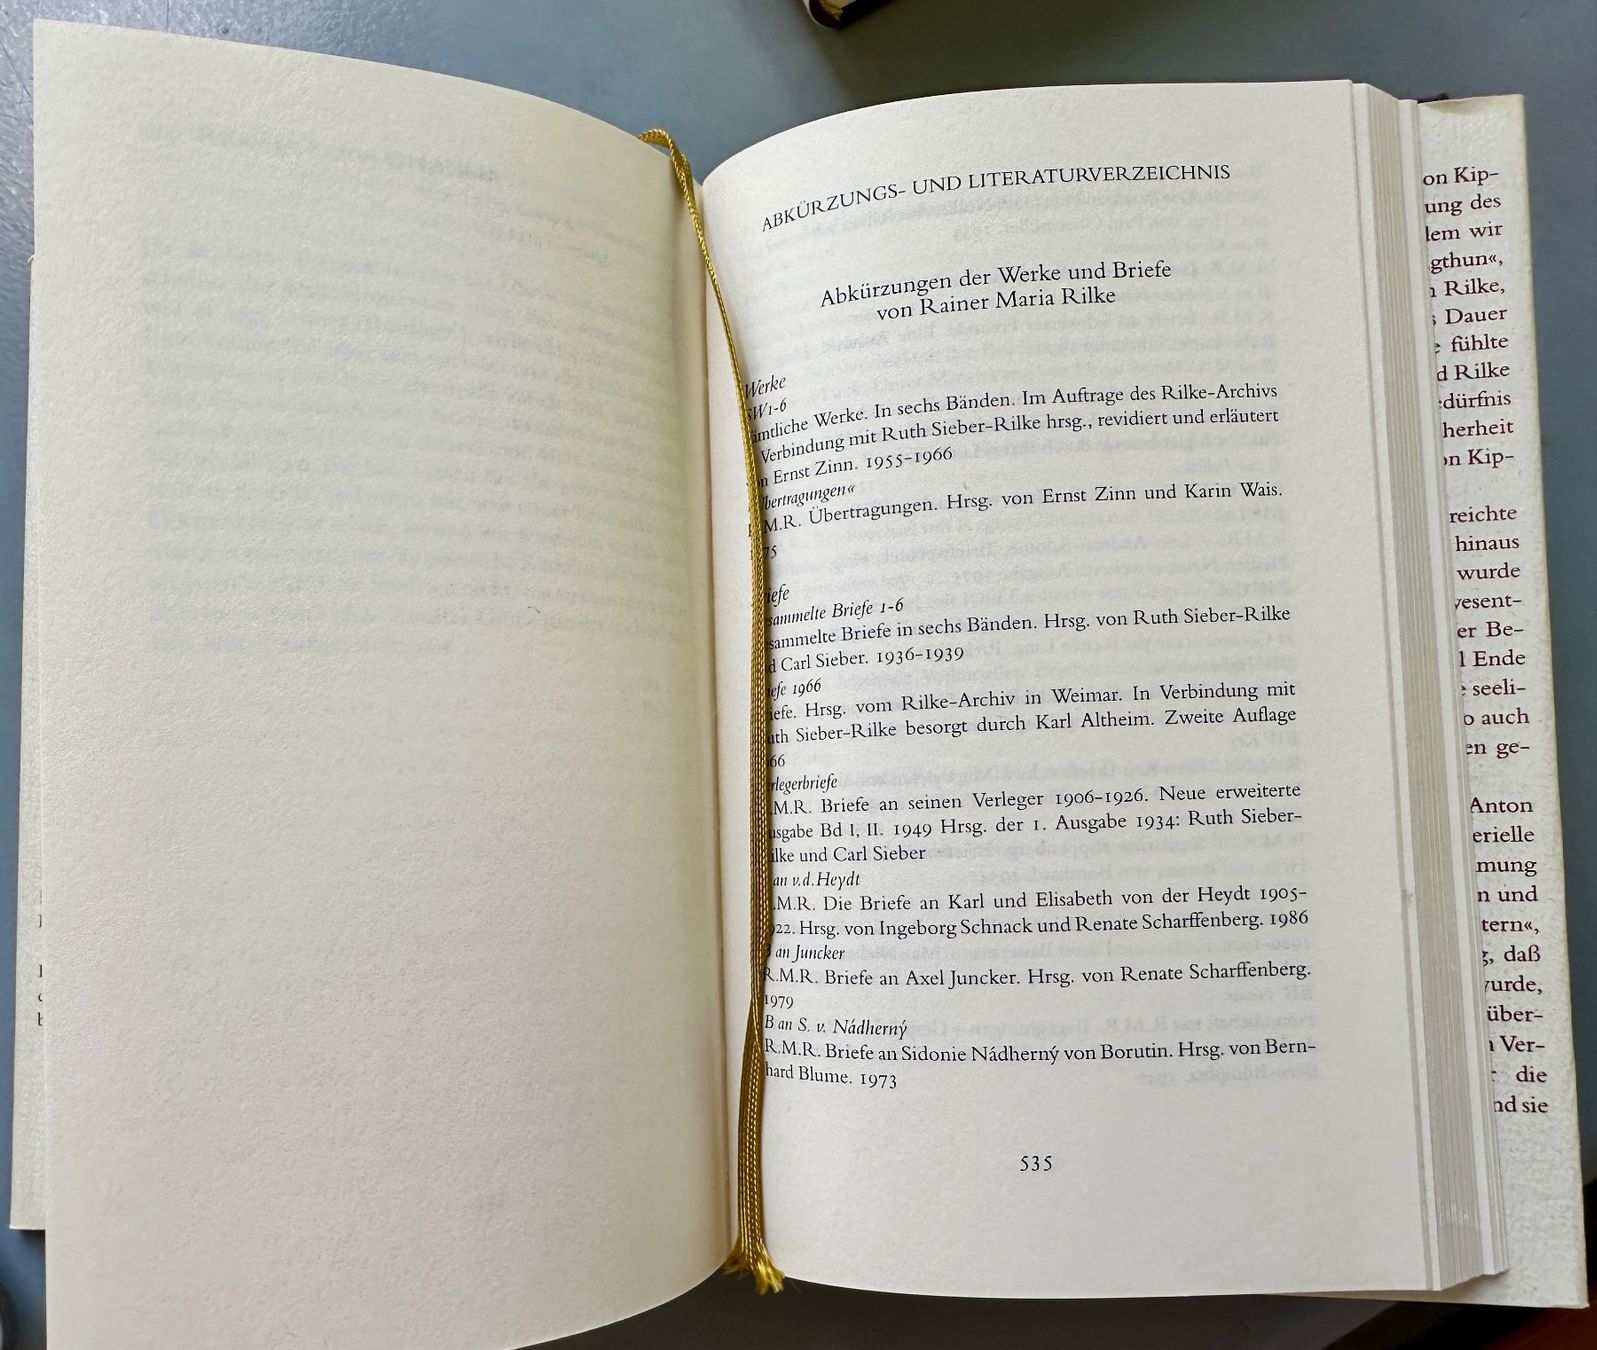 ABKÜRZUNGS- UND LITERATURVERZEICHNIS
Abkürzungen der Werke und Briefe
von Rainer Maria Rilke
Werke
SW1-6
imtliche Werke. In sechs Bänden. Im Auftrage des Rilke-Archivs
Verbindung mit Ruth Sieber-Rilke hrsg., revidiert und erläutert
n Ernst Zinn. 1955-1966
bertragungen«
M.R. Übertragungen. Hrsg. von Ernst Zinn und Karin Wais.
75
iefe
sammelte Briefe 1-6
sammelte Briefe in sechs Bänden. Hrsg. von Ruth Sieber-Rilke
d Carl Sieber. 1936-1939
iefe 1966
iefe. Hrsg. vom Rilke-Archiv in Weimar. In Verbindung mit
uth Sieber-Rilke besorgt durch Karl Altheim. Zweite Auflage
66
rlegerbriefe
.M.R. Briefe an seinen Verleger 1906-1926. Neue erweiterte
usgabe Bd I, II. 1949 Hrsg. der 1. Ausgabe 1934: Ruth Sieber-
ilke und Carl Sieber
an v.d.Heydt
.M.R. Die Briefe an Karl und Elisabeth von der Heydt 1905-
922. Hrsg. von Ingeborg Schnack und Renate Scharffenberg. 1986
an Juncker
R.M.R. Briefe an Axel Juncker. Hrsg. von Renate Scharffenberg.
1979
B an S. v. Nádherný
R.M.R. Briefe an Sidonie Nádherný von Borutin. Hrsg. von Bern-
hard Blume. 1973
535
on Kip-
ung des
lem wir
gthun«,
Rilke,
Dauer
fühlte
d Rilke
dürfnis
herheit
on Kip-
reichte
hinaus
wurde
vesent-
er Be-
l Ende
seeli-
o auch
en ge-
Anton
erielle
mung
n und
tern«,
g, daß
vurde,
über-
Ver-
die
nd sie